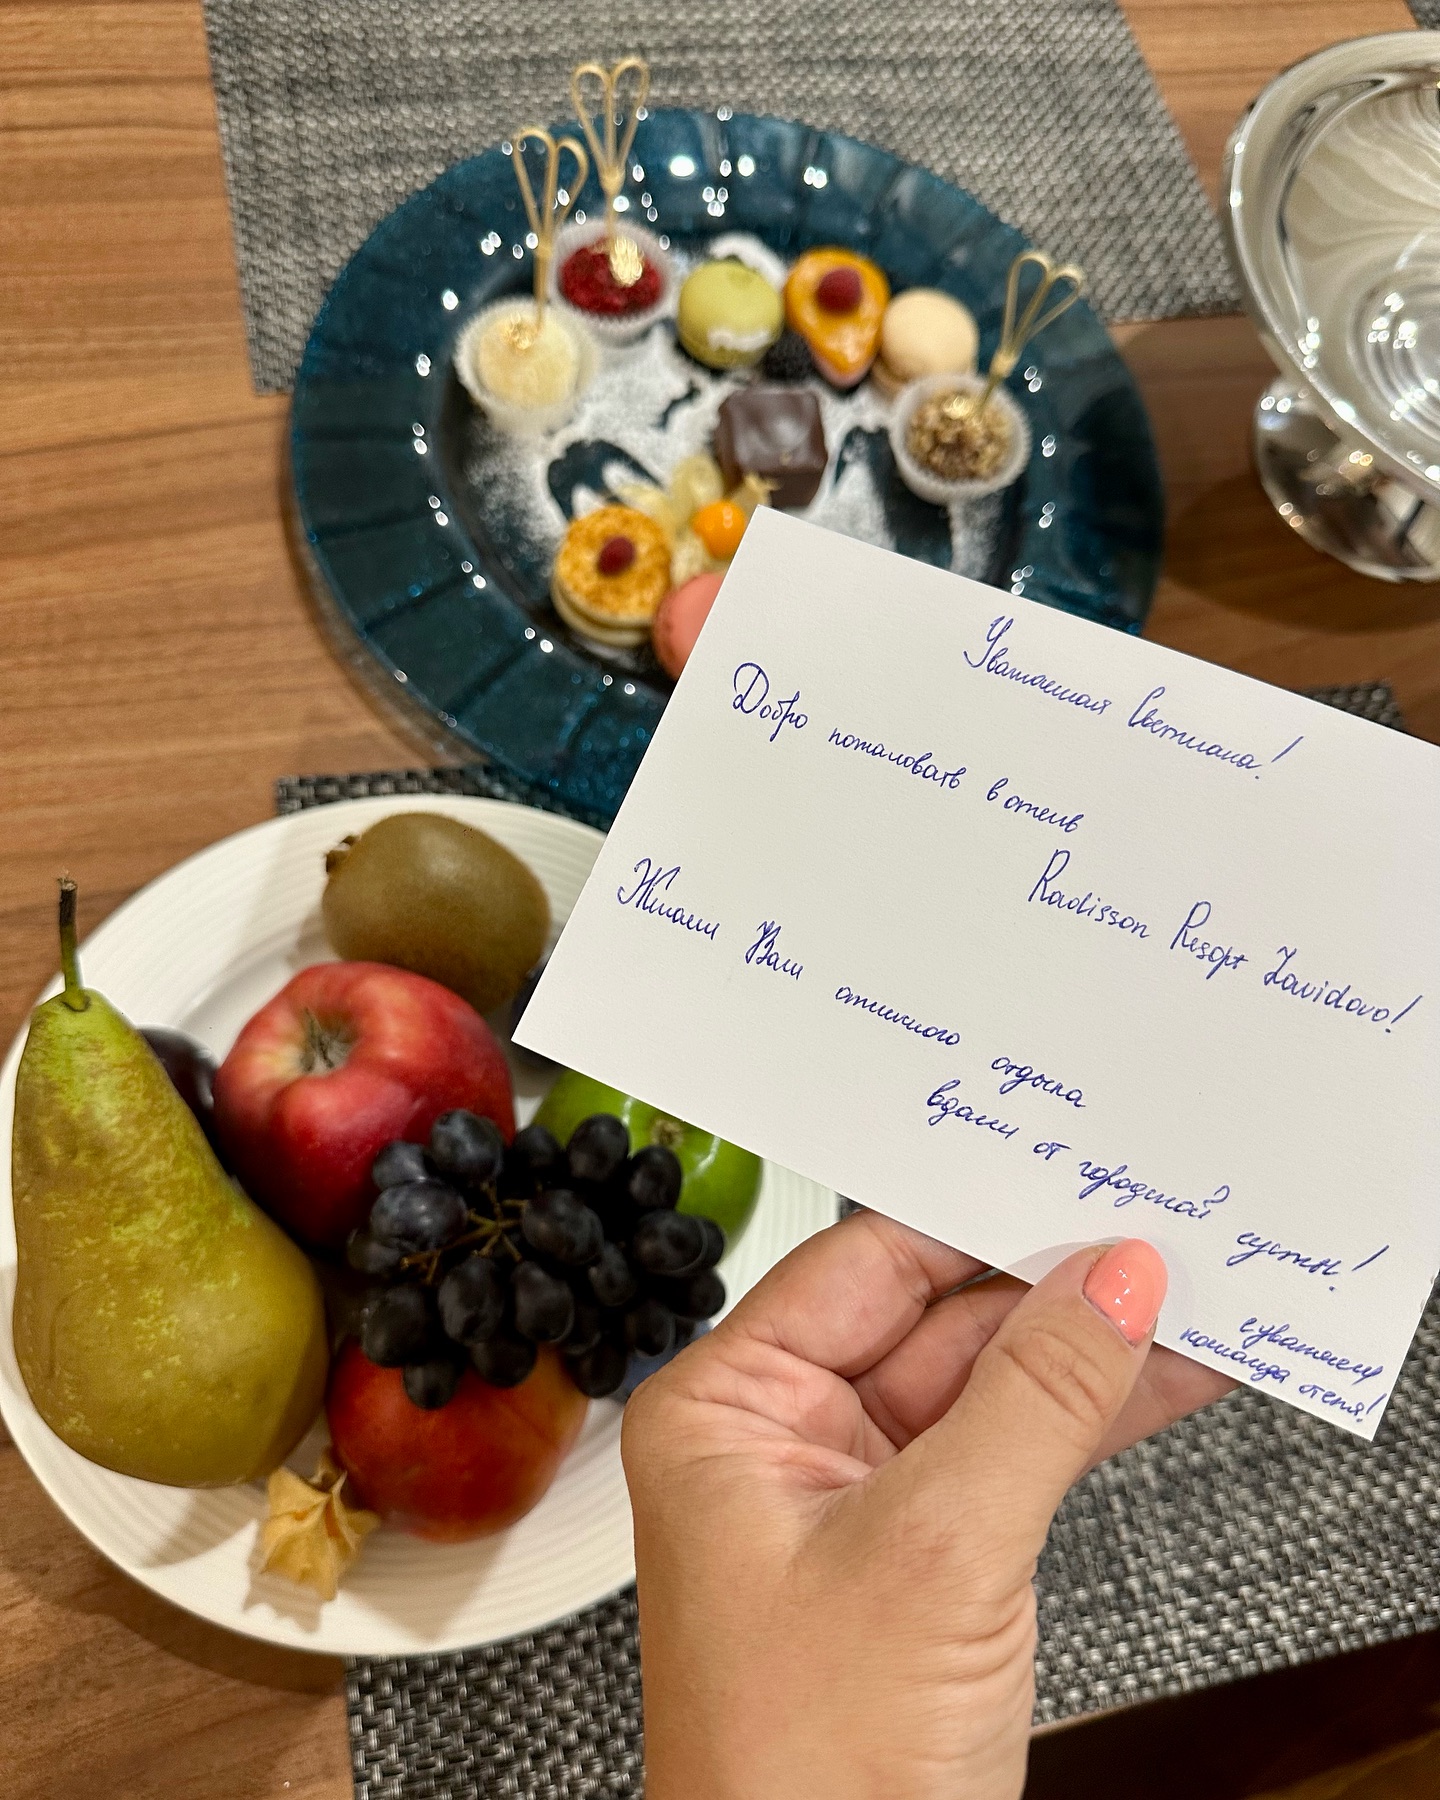 Уважаемая Светлана!
Добро пожаловать в отель
Radisson Resopт Zavidovo!
Желаем Вам отличного отдыха
вдали от городской суеты!
с уважением
команда отеля!